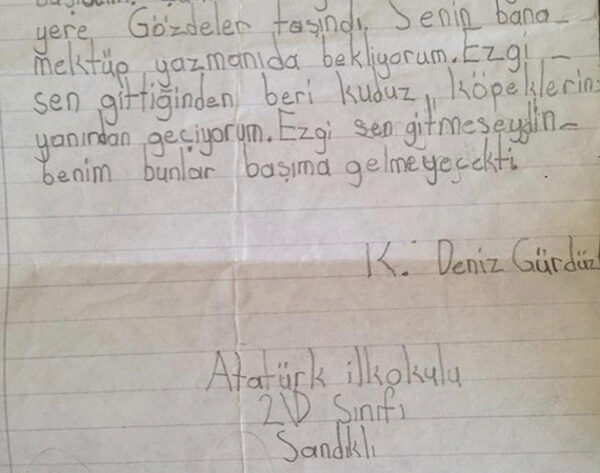 yere Gözdeler taşındı. Senin bana
mektüp yazmanıda bekliyorum. Ezgi
sen gittiğinden beri kuduz köpeklerin
yanından geçiyorum. Ezgi sen gitmeseydin
benim bunlar başıma gelmeyeçekti.
K. Deniz Gürdüz
Atatürk ilkokulu
2\D Sınıfı
Sandıklı